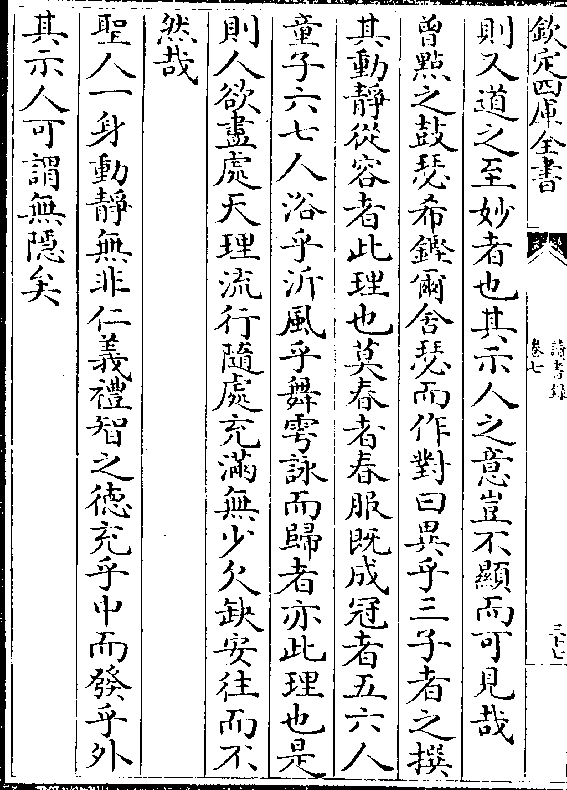 欽定四庫全書
讀書録
卷七
三十七
則又道之至妙者也其示人之意豈不顯而可見哉
曾㸃之鼓瑟希鏗爾舍瑟而作對曰異乎三子者之撰
其動靜從容者此理也莫春者春服既成冠者五六人
童子六七人浴乎沂風乎舞雩詠而歸者亦此理也是
則人欲盡處天理流行隨處充滿無少欠缺安往而不
然哉
聖人一身動靜無非仁義禮智之徳充乎中而發乎外
其示人可謂無隱矣